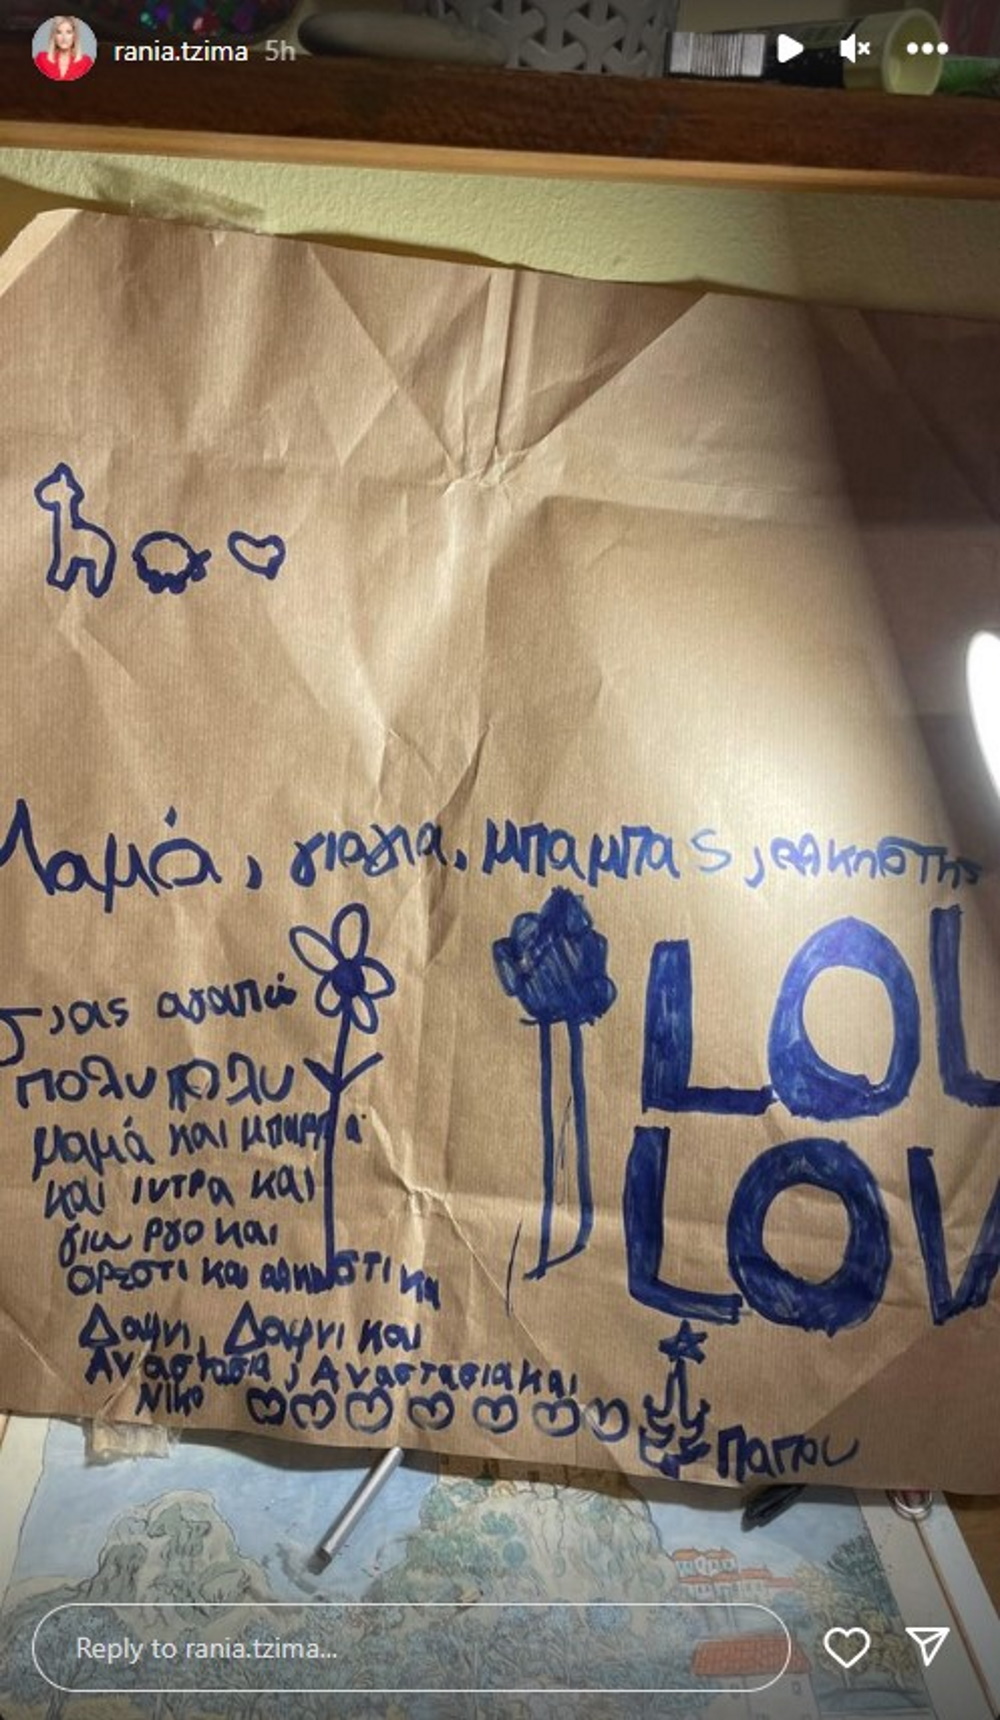 rania.tzima 5h
Μαμά, γιαγια, μπαμπας,
LOL
σας αγαπώ
πολυ πολυ
LOV
μαμά και μπαμπα
και ιντρα και
και
ορεστι και αλκιστι κα
Δαφνι, Δαφνι και
Αναστασια, Αναστασια και
Νικο
παπου
Reply to rania.tzima...